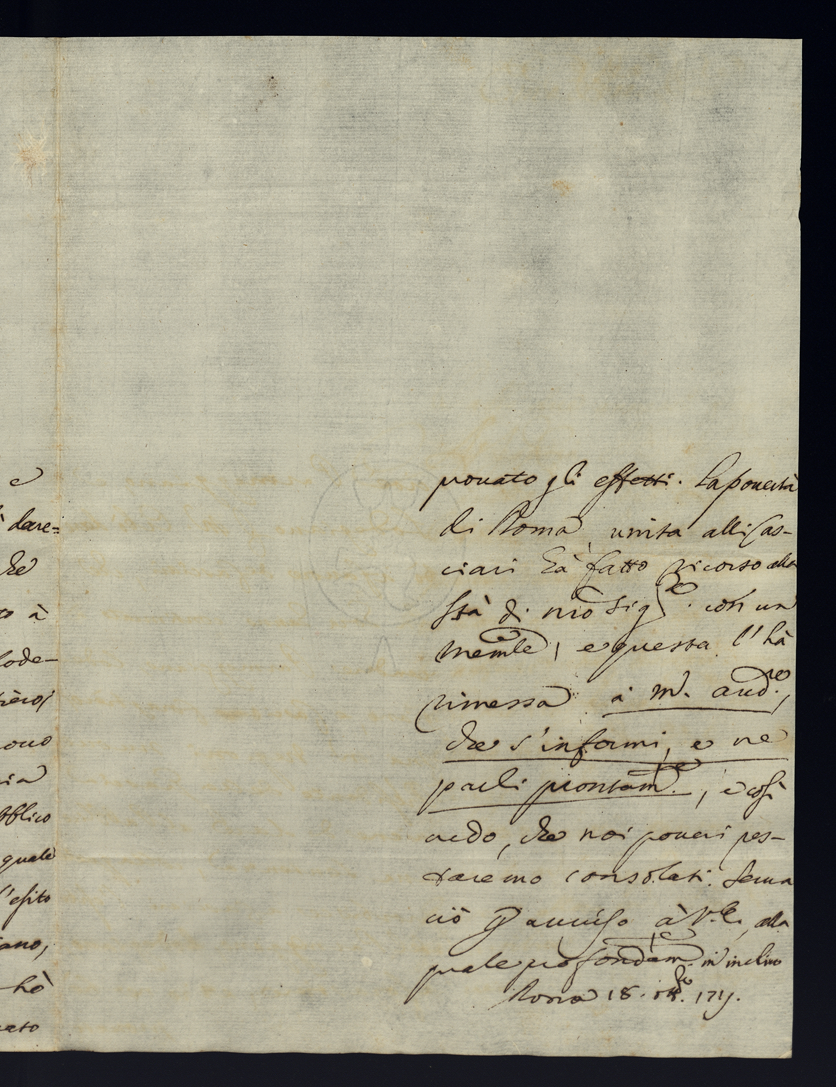 e
dare=
che
to à
lode-
ono
ria
bblico
quale
l'esito
ano,
hò
ato
prouato gli effetti. La pouertà
di Roma, unita alli Cas-
ciari hà fatto ricorso alla
Stà di nrõ Sig.re con un
memle, e questa l'hà
rimessa à m.r aud.re,
che s'informi, e ne
parli prontam.te, e così
credo, che noi poueri res-
taremo consolati. Serua
ciò p auuiso à V.E., alla
quale profondam.te m'inchino
Roma 18. 171